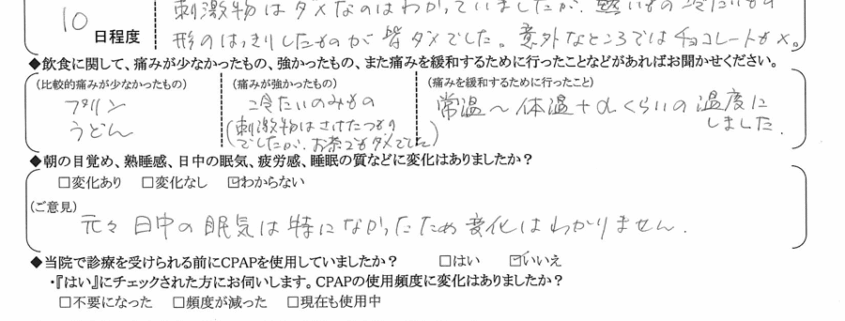 刺激物はダメなのはわかっていましたが、熱いもの冷たいもの
10
日程度
形のはっきりしたものが皆ダメでした。意外なところではチョコレートが×。
◆飲食に関して、痛みが少なかったもの、強かったもの、また痛みを緩和するために行ったことなどがあればお聞かせください。
(比較的痛みが少なかったもの)
プリン
うどん
(痛みが強かったもの)
冷たいのみもの
(刺激物はさけたつもり
でしたが、お茶でもダメでした)
(痛みを緩和するために行ったこと)
常温〜体温+αくらいの温度に
しました.
◆朝の目覚め、熟睡感、日中の眠気、疲労感、睡眠の質などに変化はありましたか?
□変化あり □変化なし ☑わからない
(ご意見)
元々日中の眠気は特になかったため変化はわかりません.
◆当院で診療を受けられる前にCPAPを使用していましたか? □はい ☑いいえ
・『はい』にチェックされた方にお伺いします。CPAPの使用頻度に変化はありましたか?
□不要になった □頻度が減った □現在も使用中